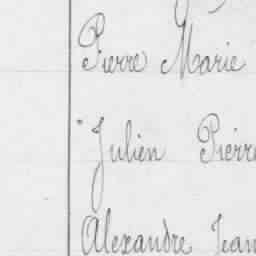 Pierre Marie
Julien Pierre
Alexandre Jean